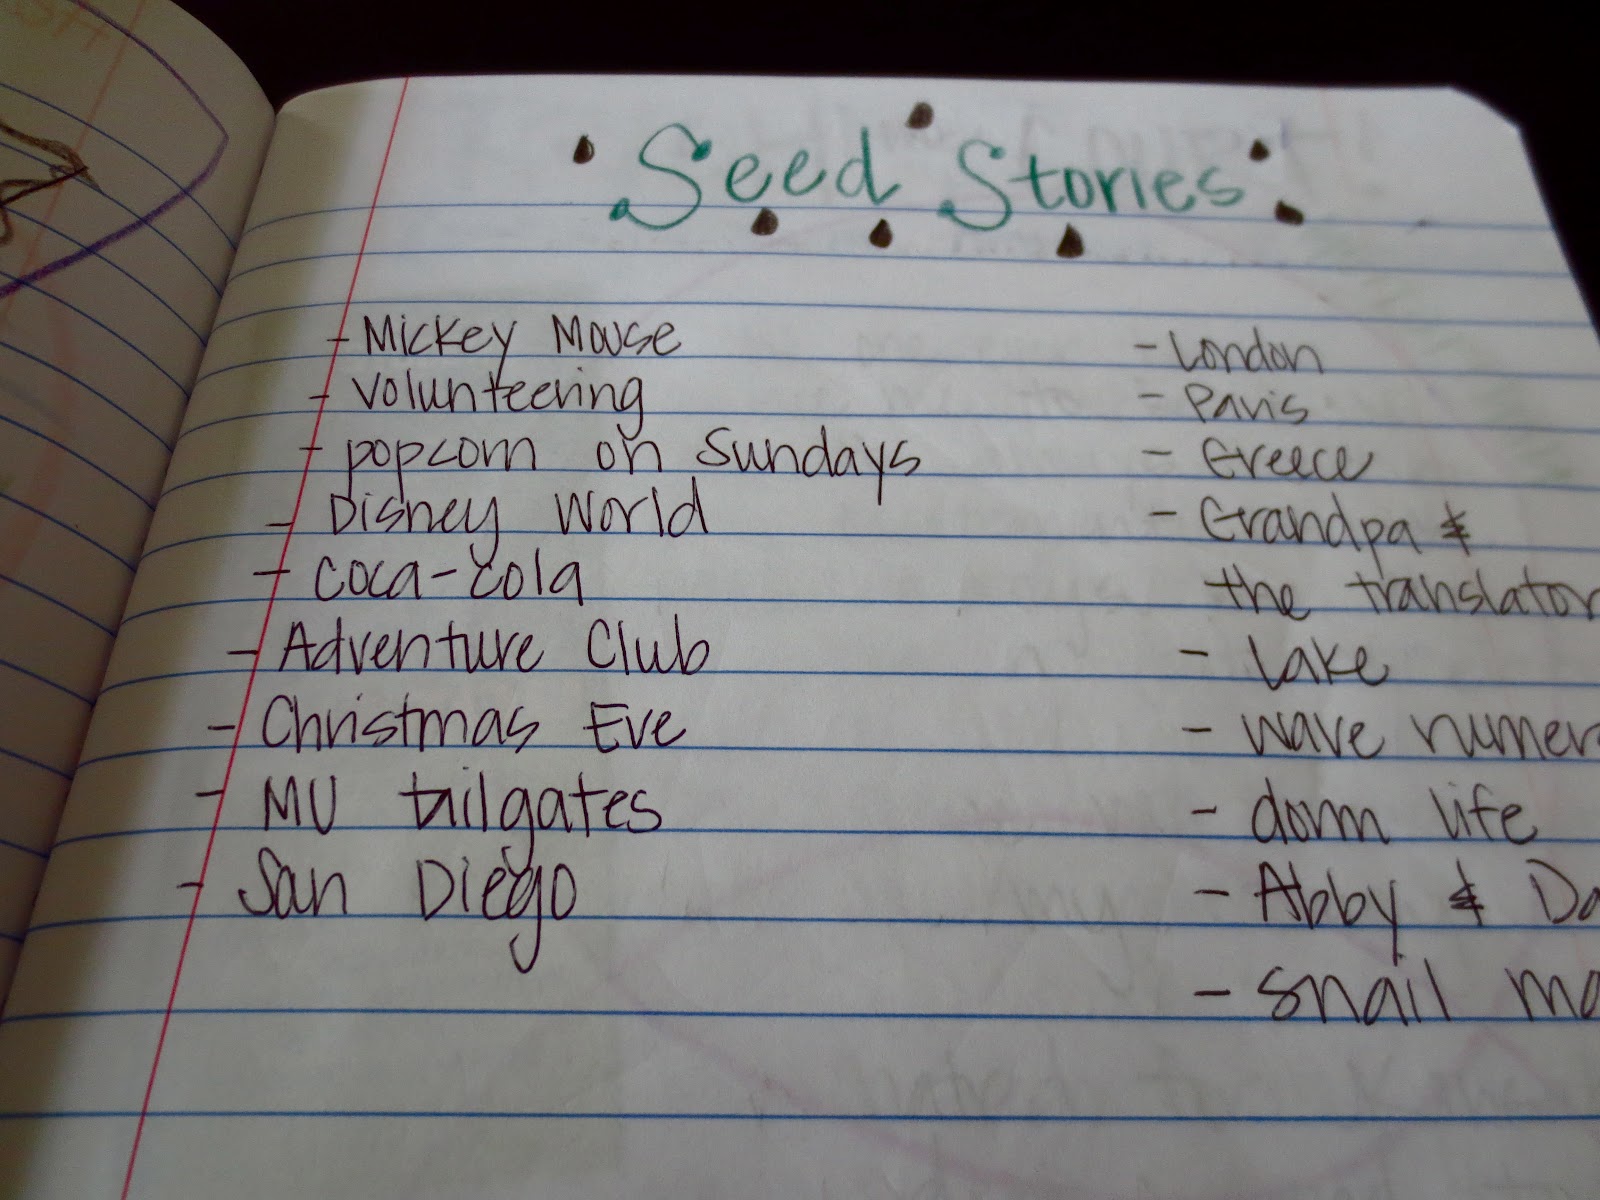 Seed Stories
- Mickey Mouse
- volunteering
- popcorn on Sundays
- Disney World
- coca-cola
- Adventure Club
- Christmas Eve
- MU tailgates
- San Diego
- London
- Paris
- Greece
- Grandpa &
the translator
- Lake
- wave
- dorm life
- Abby &
- snail